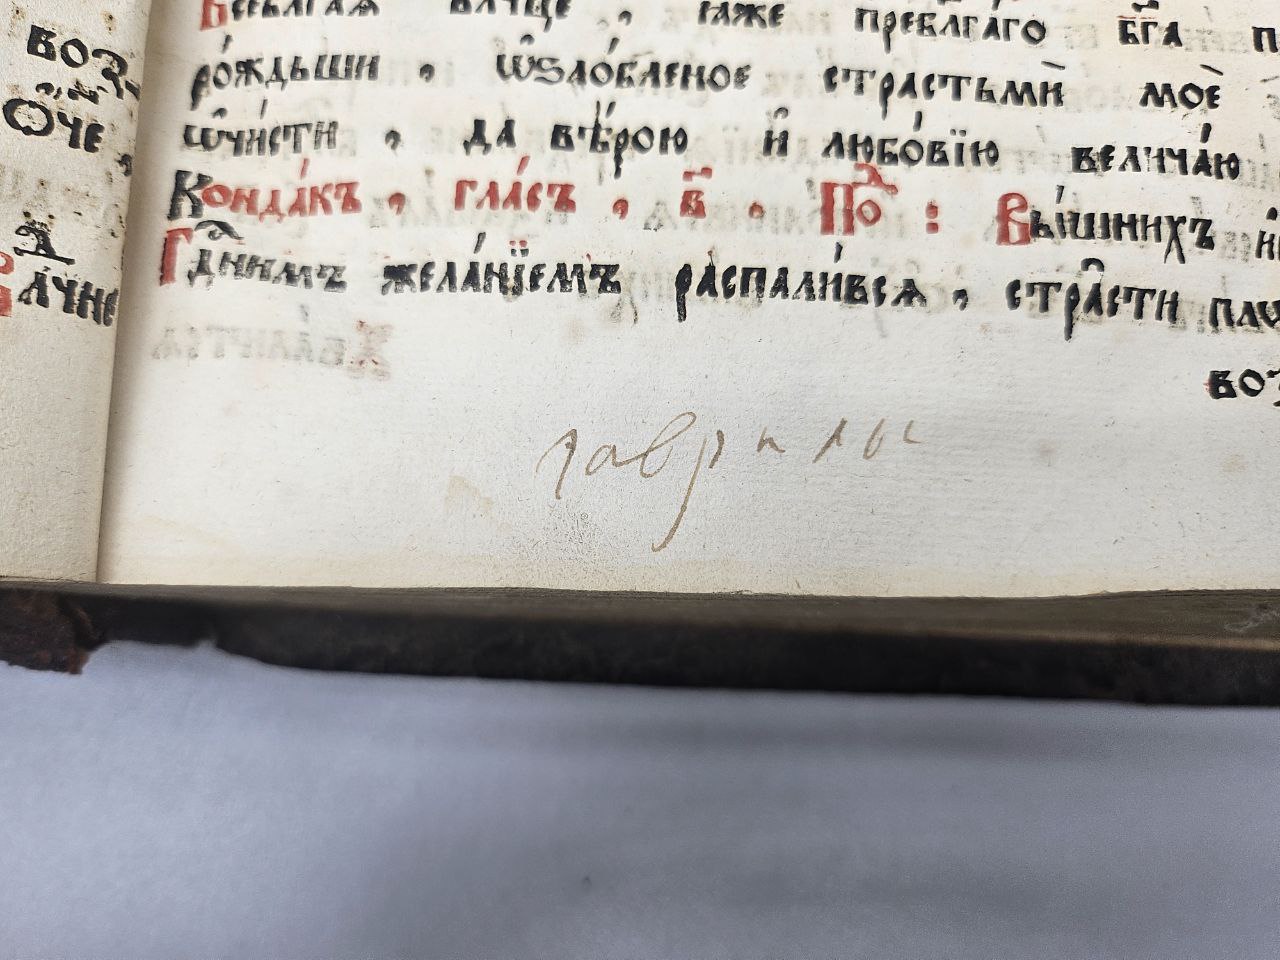 воз
ѿче
ѧчне
Всеблгаѧ влⷣце, ꙗже преблга́го бг҃а
ро́ждьши, ѡ҆ѕло́бленое страстьмѝ моѐ
ѡ҆чи́сти, да вѣ́рою и҆ любо́вїю велича́ю
Конда́къ, гла́съ, в҃. Поⷣ: Вы́шнихъ
Гдⷭ҇нимъ жела́нїемъ распали́всѧ, стра̑сти
воз
гаврилы